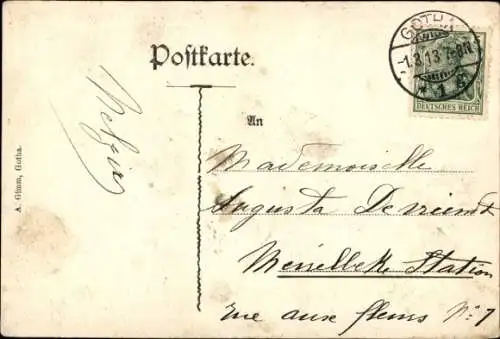 Postkarte.
GOTHA
1.3.13.7-8N
* 1 *
DEUTSCHES REICH
An
Mademoiselle
Augusta Devriendt
Station
rue aux fleurs No 7
A. Glmm, Gotha.